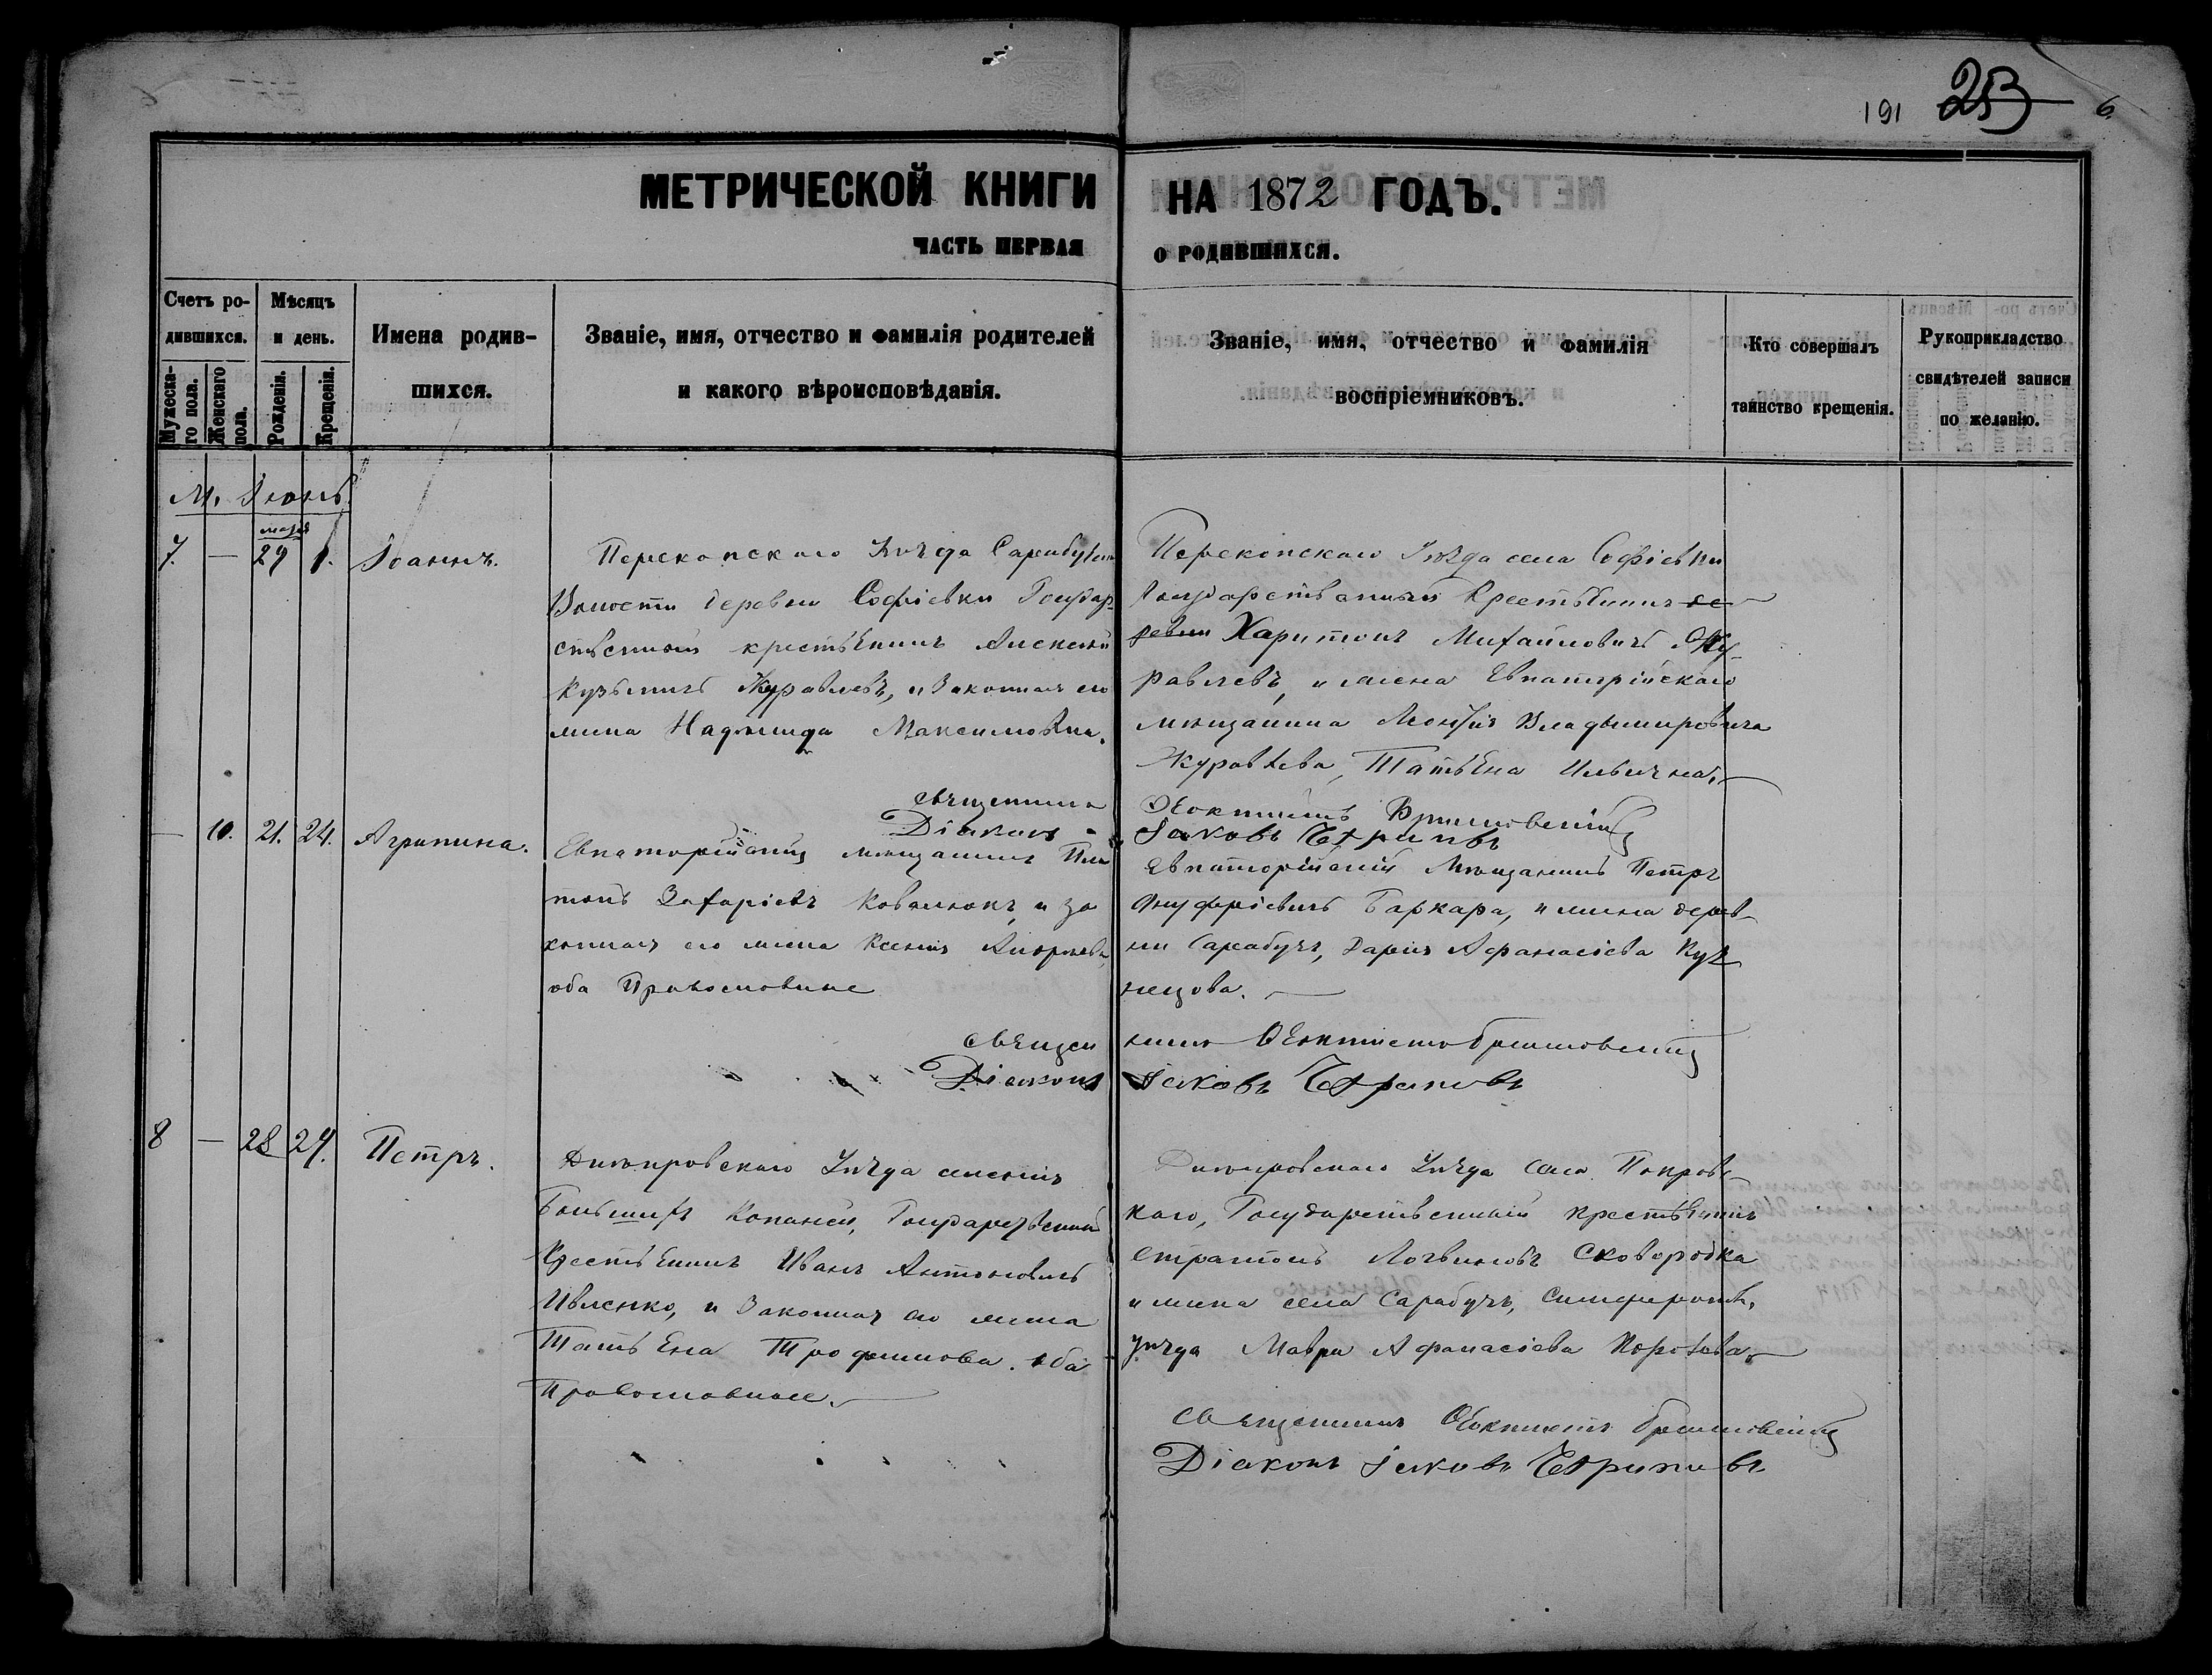 191 253 6
МЕТРИЧЕСКОЙ КНИГИ НА 1872 ГОДЪ.
ЧАСТЬ ПЕРВАЯ О РОДИВШИХСЯ.
Счетъ ро-
дившихся.
Мужеска-
го пола.
Женскаго
пола.
Мѣсяцъ
и день.
Рожденія.
Крещенія.
Имена родив-
шихся.
Званіе, имя, отчество и фамилія родителей
и какого вѣроисповѣданія.
Званіе, имя, отчество и фамилія
воспріемниковъ.
Кто совершалъ
таинство крещенія.
Рукоприкладство
свидѣтелей записи
по желанію.
М. Іюнь
мая
7. — 29 1. Іоаннъ.
Перекопскаго Уѣзда
Волости деревни Софіевки Государ-
ственный крестьянинъ Алексѣй
Кузьмичъ Журавлевъ, и Законная его
жена Надежда Максимовна.
Перекопскаго Уѣзда села Софіевки
Государственный Крестьянинъ де-
ревни Харитонъ Михайловичъ Жу-
равлевъ, и жена Евпаторійскаго
мѣщанина Владимировича
Журавлева, Татьяна Ильична.
Священникъ Ѳеоктистъ
Діаконъ Іаковъ
— 10. 21. 24. Агрипина.
Евпаторійскій мѣщанинъ Пла
тонъ Захаріевъ Ковалюкъ, и за
конная его жена Ксенія
оба Православные
Евпаторійскій Мѣщанинъ Петръ
Онуфріевичъ Баркара, и жена дерев-
ни Сарабузъ, Дарія Афанасіева Куз
нецова.
Священ никъ Ѳеоктистъ
Діаконъ Іаковъ
8 — 28 29. Петръ.
Днѣпровскаго Уѣзда селенія
Большихъ Копаней, Государственный
Крестьянинъ Иванъ Антоновичъ
Ивленко, и Законная его жена
Татьяна Трофимова. оба
Православные.
Днѣпровскаго Уѣзда села Покровс-
каго, Государственный крестьянинъ
Стратонъ Логвиновъ Сковородка
и жена села Сарабузъ, Симфероп.
уѣзда Мавра Афанасіева
Священникъ Ѳеоктистъ
Діаконъ Іаковъ